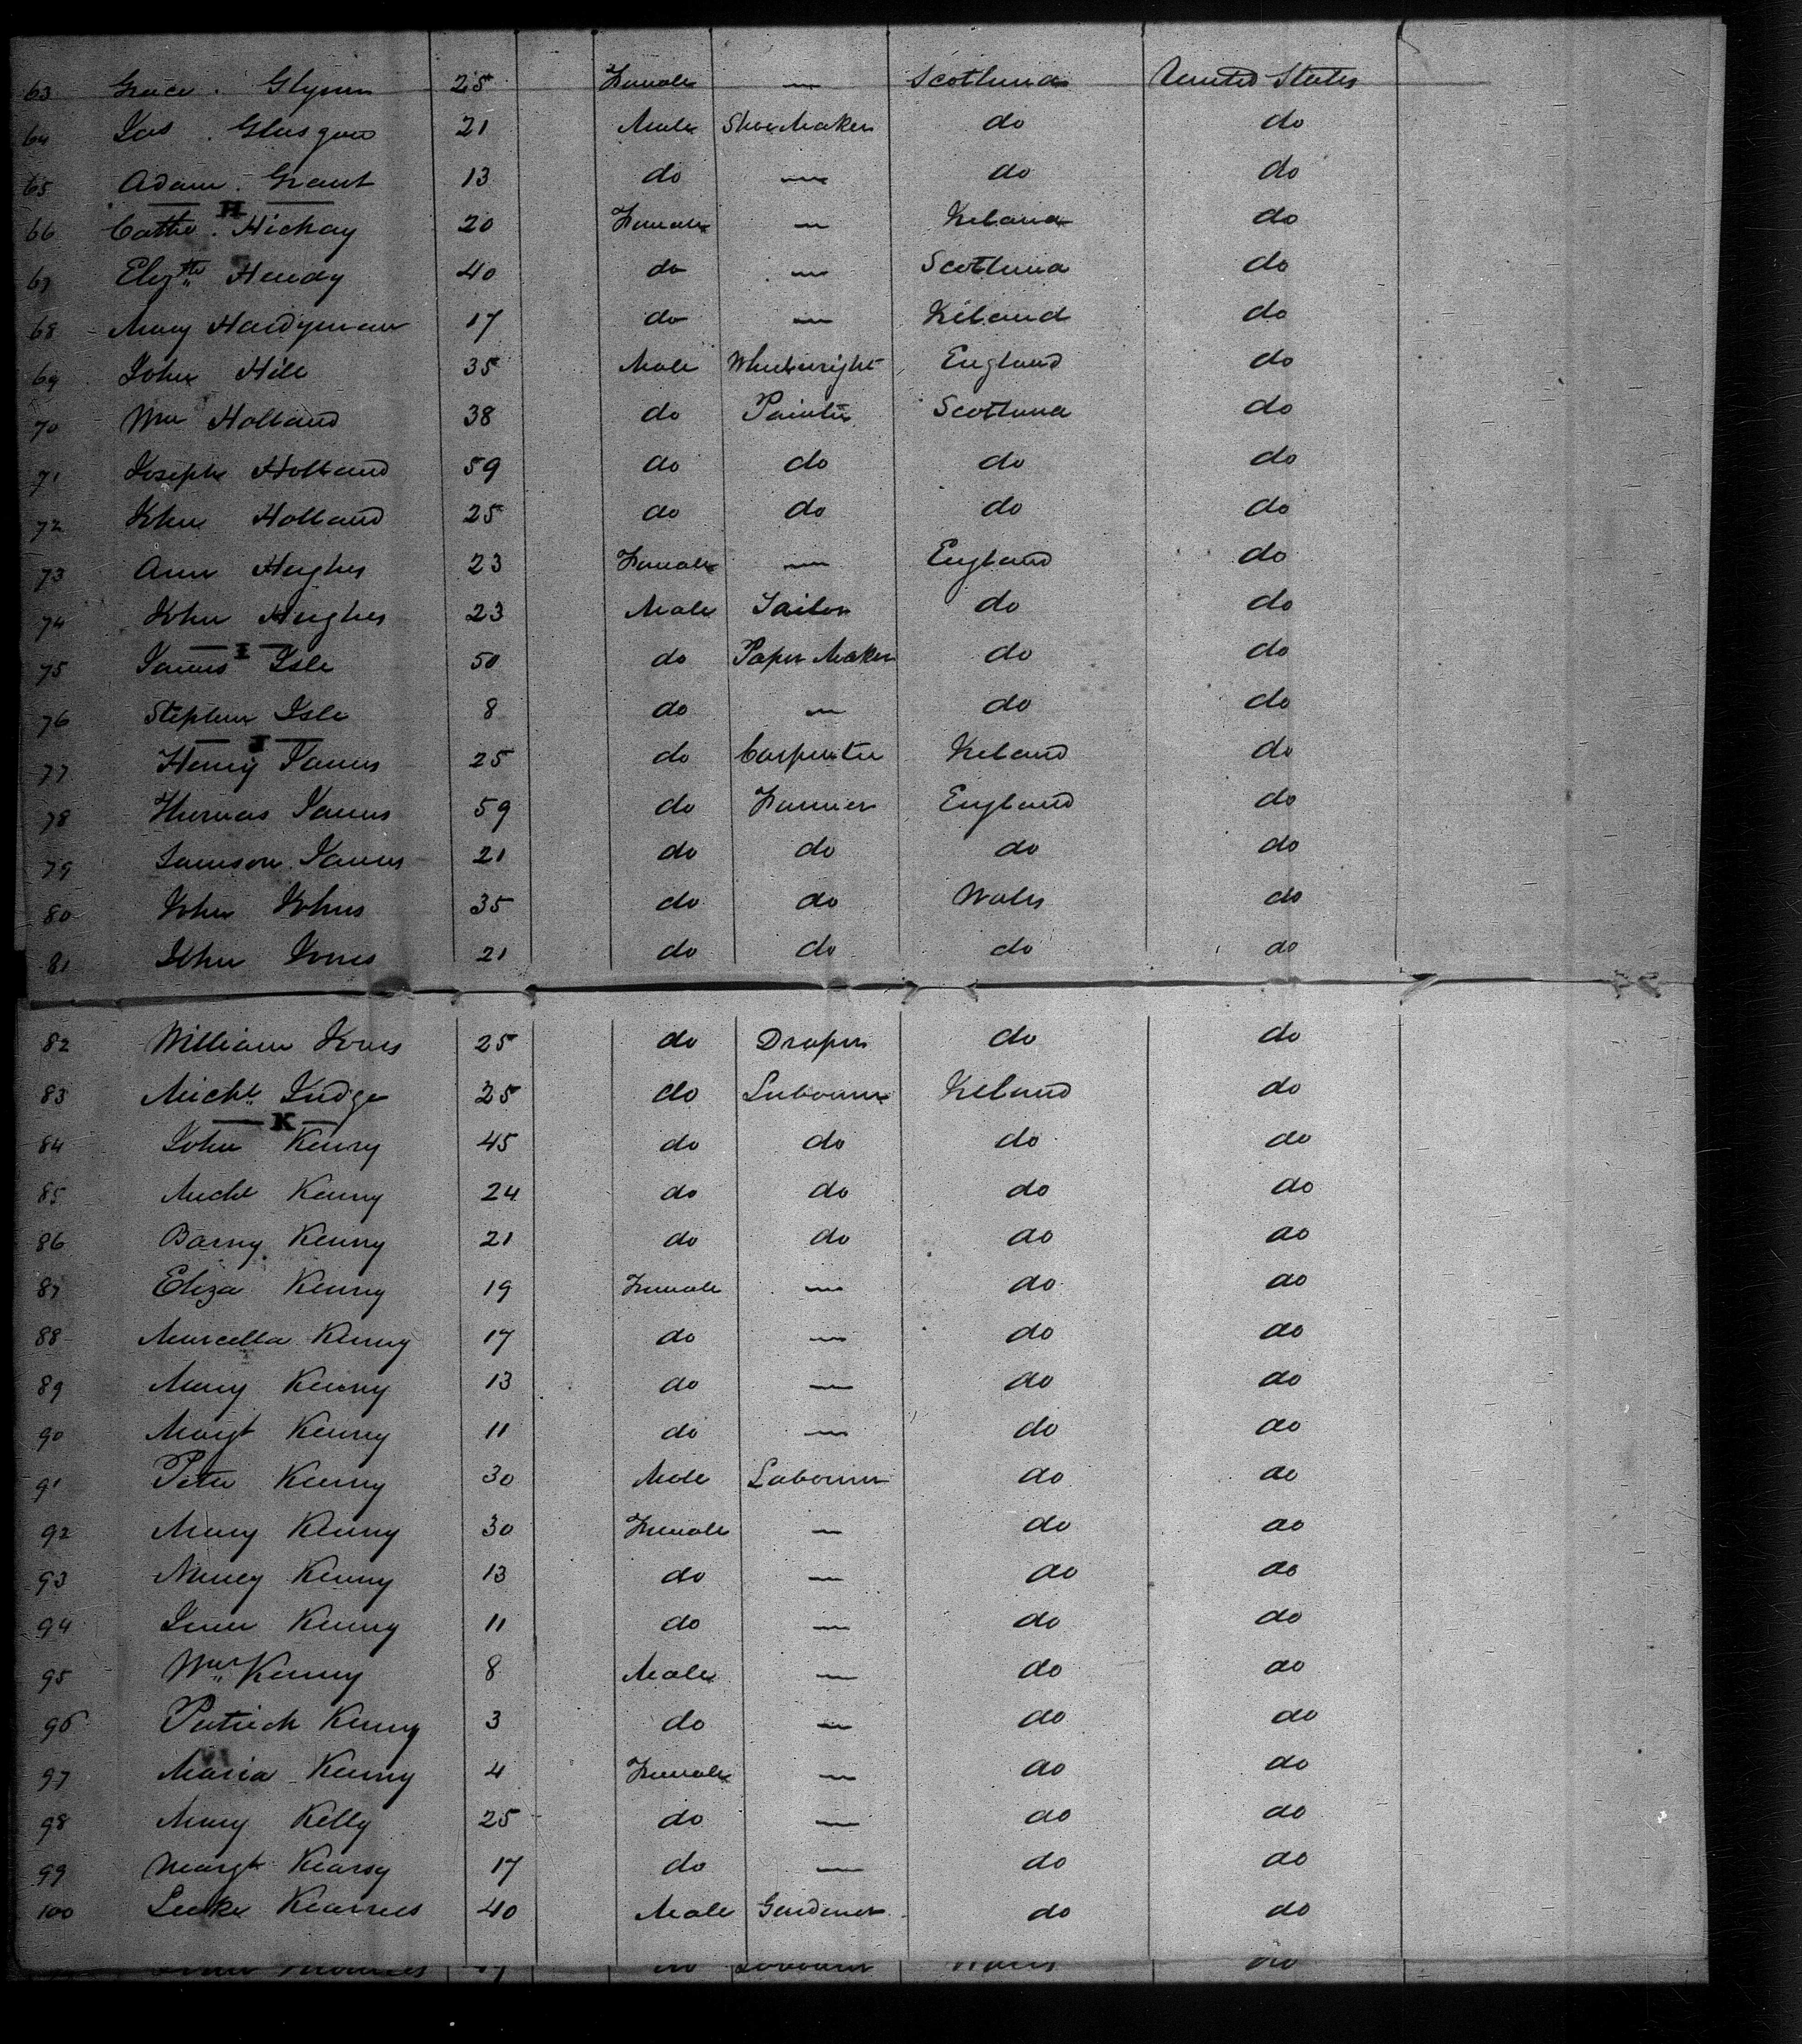 63 Grace . Glynn 25 Female — Scotland United States
64 Jas . Glasgow 21 Male Shoe Maker do do
65 Adam . Grant 13 do — do do
— H —
66 Cathe . Hickay 20 Female — Ireland do
67 Elizth Hendy 40 do — Scotland do
68 Mary Hardyman 17 do — Ireland do
69 John Hill 35 Male Wheelwright England do
70 Wm Holland 38 do Painter Scotland do
71 Joseph Holland 59 do do do do
72 John Holland 25 do do do do
73 Ann Hughes 23 Female — England do
74 John Hughes 23 Male Tailor do do
— I —
75 James Isle 50 do Paper Maker do do
76 Stephen Isle 8 do — do do
— J —
77 Henry James 25 do Carpenter Ireland do
78 Thomas James 59 do Farmer England do
79 Samson James 21 do do do do
80 John Johns 35 do do Wales do
81 John Jones 21 do do do do
82 William Jones 25 do Draper do do
83 Michl Judge 25 do Labourer Ireland do
— K —
84 John Kenny 45 do do do do
85 Michl Kenny 24 do do do do
86 Barny Kenny 21 do do do do
87 Eliza Kenny 19 Female — do do
88 Marcella Kenny 17 do — do do
89 Mary Kenny 13 do — do do
90 Margt Kenny 11 do — do do
91 Peter Kenny 30 Male Labourer do do
92 Mary Kenny 30 Female — do do
93 Nancy Kenny 13 do — do do
94 Jane Kenny 11 do — do do
95 Wm Kenny 8 Male — do do
96 Patrick Kenny 3 do — do do
97 Maria Kenny 4 Female — do do
98 Mary Kelly 25 do — do do
99 Margt Kearsy 17 do — do do
100 Luke Kearnes 40 Male Gardener do do